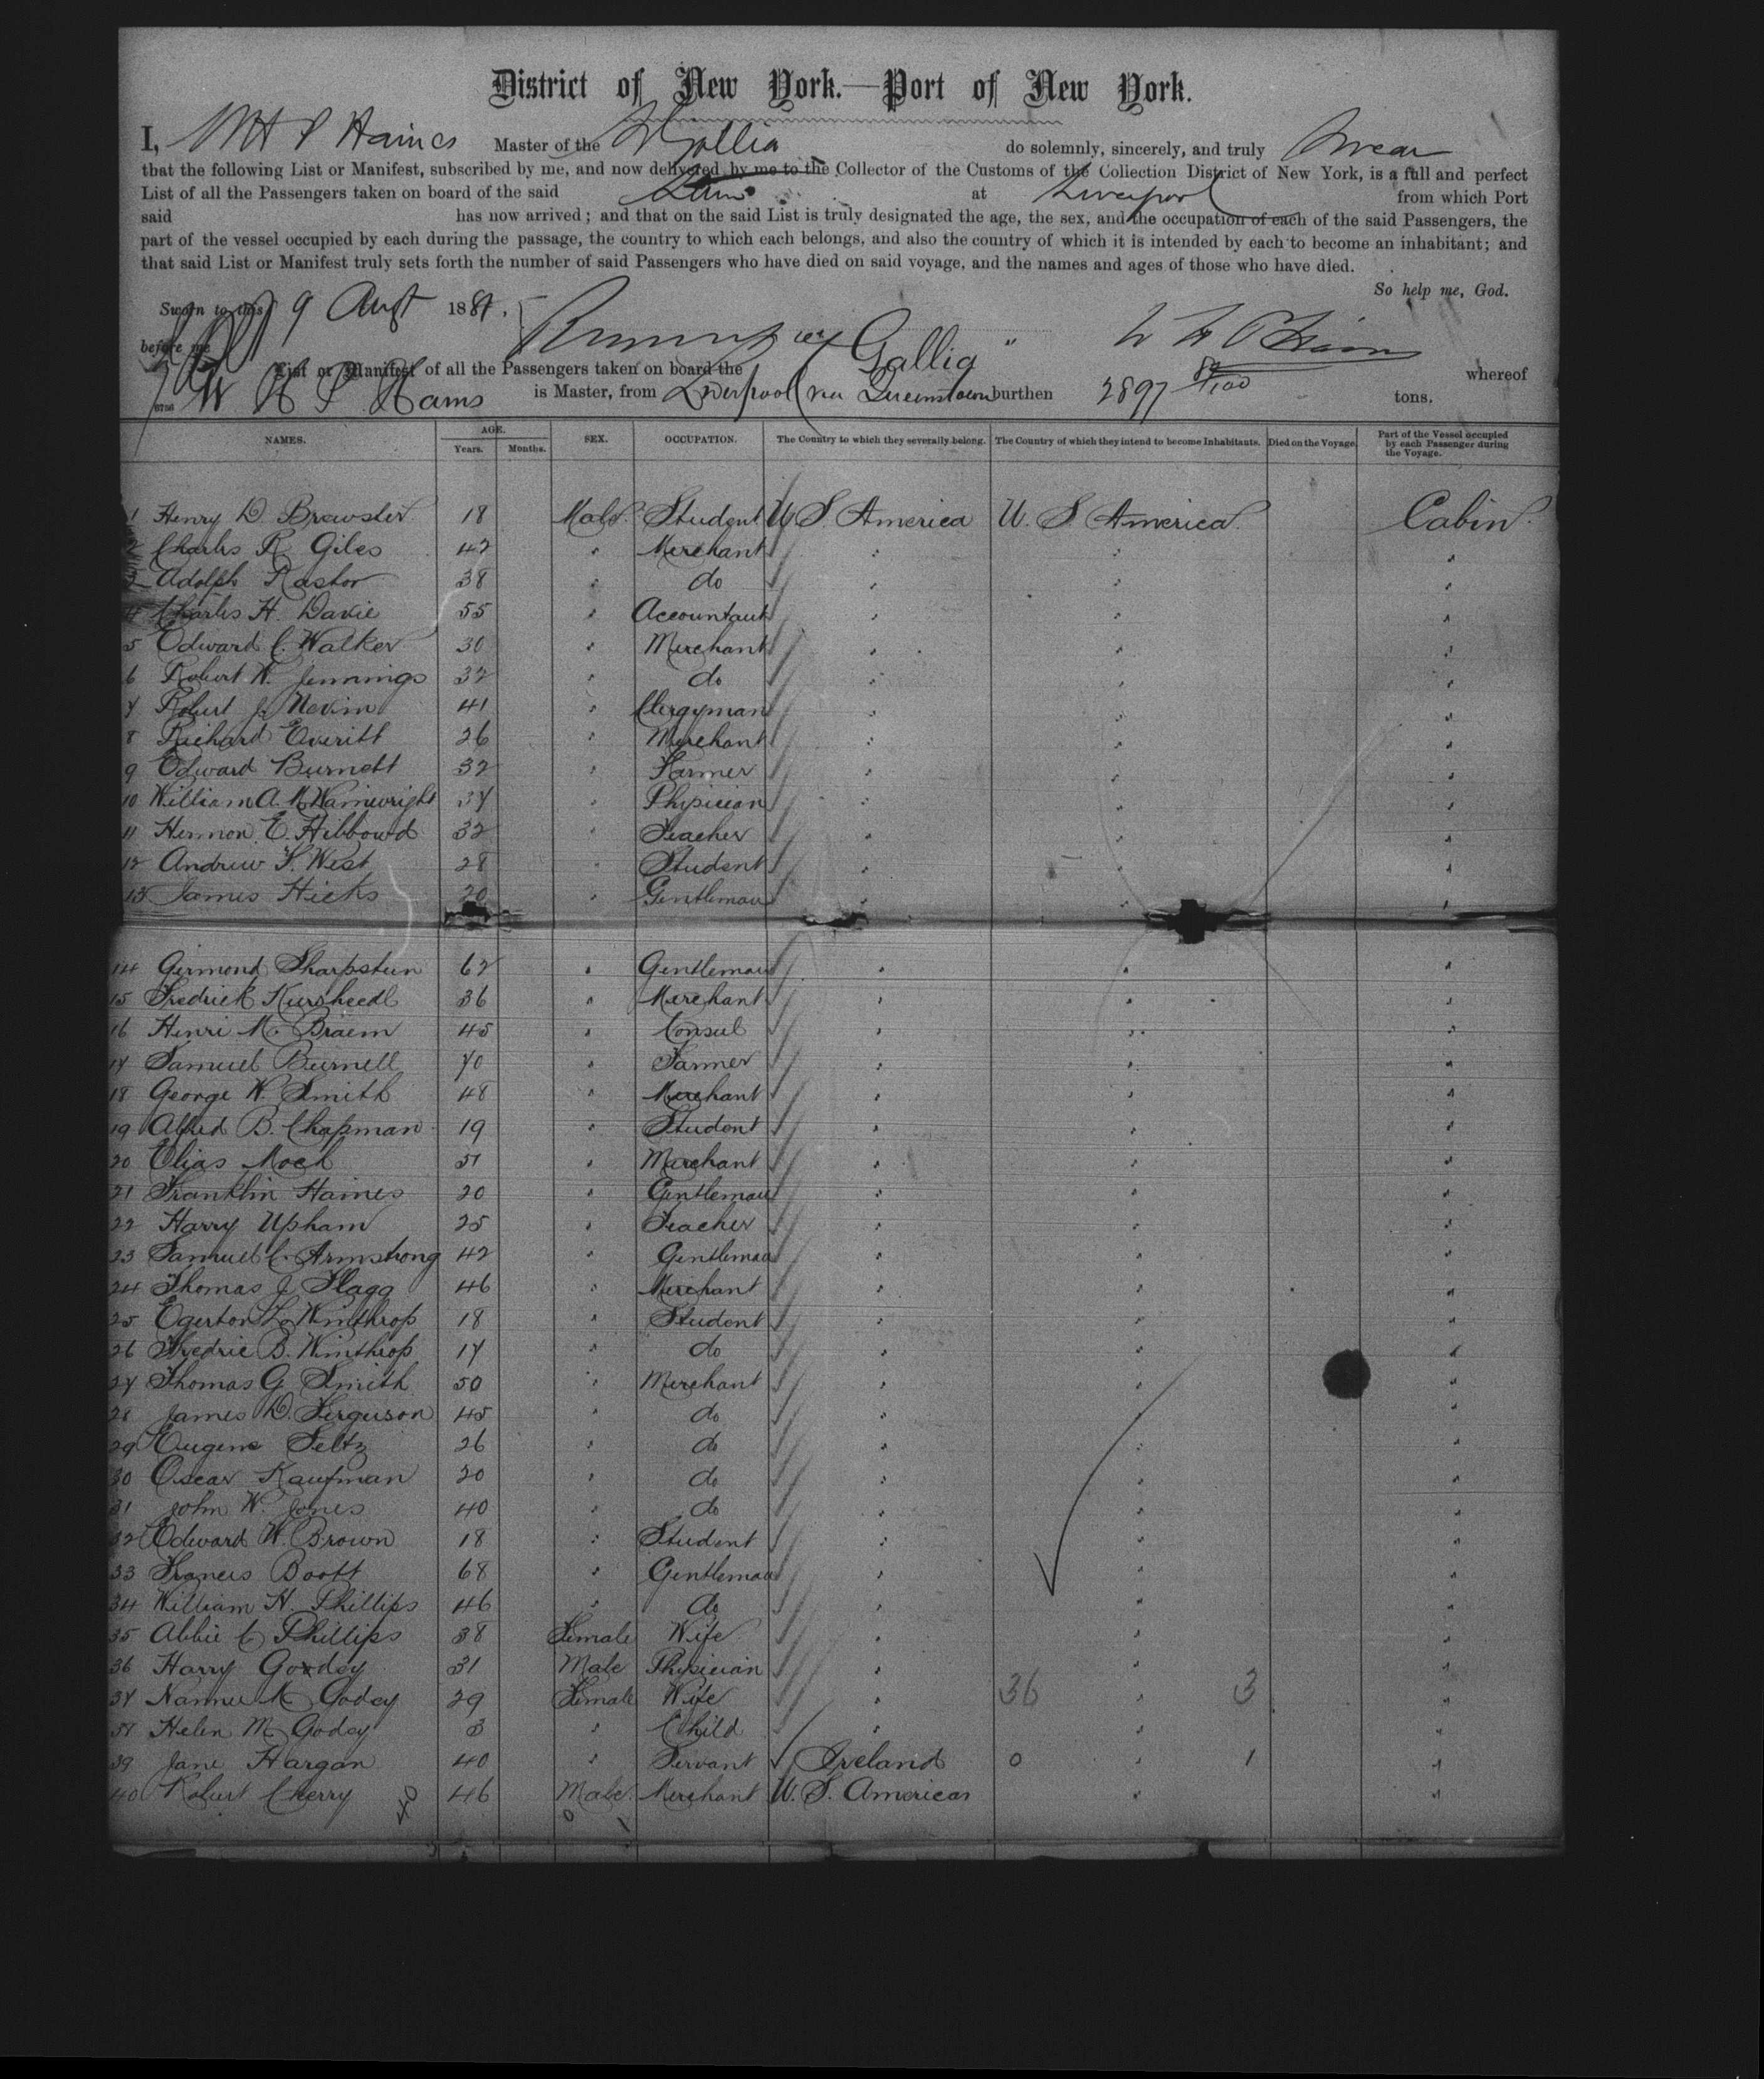 District of New York.—Port of New York.
I, W H P Hains Master of the Gallia do solemnly, sincerely, and truly swear
that the following List or Manifest, subscribed by me, and now delivered by me to the Collector of the Customs of the Collection District of New York, is a full and perfect
List of all the Passengers taken on board of the said at Liverpool from which Port
said has now arrived; and that on the said List is truly designated the age, the sex, and the occupation of each of the said Passengers, the
part of the vessel occupied by each during the passage, the country to which each belongs, and also the country of which it is intended by each to become an inhabitant; and
that said List or Manifest truly sets forth the number of said Passengers who have died on said voyage, and the names and ages of those who have died.
So help me, God.
Sworn to this 9 Augt 1881.
before me
List or Manifest of all the Passengers taken on board the Gallia " whereof
W H P Hains is Master, from Liverpool via Queenstown burthen 2897 tons.
NAMES. AGE. SEX. OCCUPATION. The Country to which they severally belong. The Country of which they intend to become Inhabitants. Died on the Voyage. Part of the Vessel occupied by each Passenger during the Voyage.
Years. Months.
1 Henry D Brewster 18 Male Student U S America U. S. America Cabin
2 Charles R Giles 42 " Merchant " " "
3 Adolph Kastor 38 " do " " "
4 Charles H. Davie 55 " Accountant " " "
5 Edward C. Walker 30 " Merchant " " "
6 Robert W. Jennings 32 " do " " "
7 Robert J. Nevin 41 " Clergyman " " "
8 Richard Everitt 26 " Merchant " " "
9 Edward Burnett 32 " Farmer " " "
10 William A. M. Wainwright 37 " Physician " " "
11 Hermon E. Hibbard 32 " Teacher " " "
12 Andrew F. West 28 " Student " " "
13 James Hicks 20 " Gentleman " " "
14 Germond Sharpstein 62 " Gentleman " " "
15 Fredrick Kursheedt 36 " Merchant " " "
16 Henri M. Braem 45 " Consul " " "
17 Samuel Burnell 70 " Farmer " " "
18 George W. Smith 48 " Merchant " " "
19 Alfred B. Chapman 19 " Student " " "
20 Elias Moch 51 " Merchant " " "
21 Franklin Haines 20 " Gentleman " " "
22 Harry Upham 25 " Teacher " " "
23 Samuel C. Armstrong 42 " Gentleman " " "
24 Thomas J Flagg 46 " Merchant " " "
25 Egerton L. Winthrop 18 " Student " " "
26 Fredric B. Winthrop 17 " do " " "
27 Thomas G Smith 50 " Merchant " " "
28 James D. Ferguson 45 " do " " "
29 Eugene Seltz 26 " do " " "
30 Oscar Kaufman 20 " do " " "
31 John W. Jones 40 " do " " "
32 Edward W. Brown 18 " Student " " "
33 Francis Boott 68 " Gentleman " " "
34 William H. Phillips 46 " do " " "
35 Abbie C Phillips 38 Female Wife " " "
36 Harry Godey 31 Male Physician " " "
37 Nannie M Godey 29 Female Wife " 36 " 3 "
38 Helen M Godey 3 " Child " " "
39 Jane Hargan 40 " Servant Ireland 0 " 1 "
40 Robert Cherry 46 Male Merchant U. S. America " "